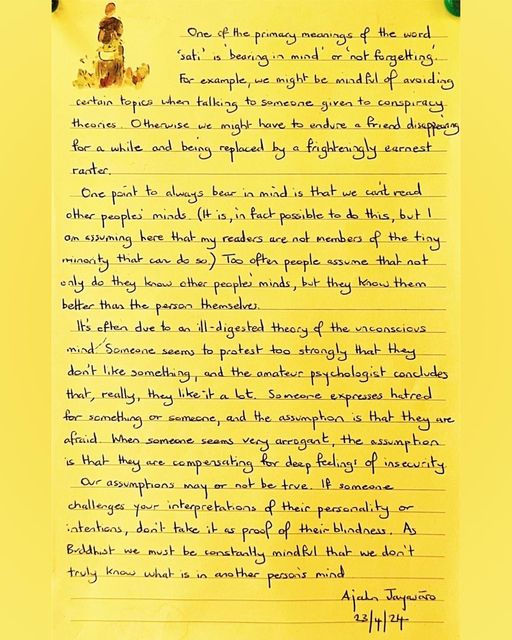 One of the primary meanings of the word
'sati' is 'bearing in mind' or 'not forgetting'.
For example, we might be mindful of avoiding
certain topics when talking to someone given to conspiracy
theories. Otherwise we might have to endure a friend disappearing
for a while and being replaced by a frighteningly earnest
ranter.
One point to always bear in mind is that we can't read
other peoples' minds. (It is, in fact possible to do this, but I
am assuming here that my readers are not members of the tiny
minority that can do so.) Too often people assume that not
only do they know other peoples' minds, but they know them
better than the person themselves.
It's often due to an ill-digested theory of the unconscious
mind. Someone seems to protest too strongly that they
don't like something, and the amateur psychologist concludes
that, really, they like it a lot. Someone expresses hatred
for something or someone, and the assumption is that they are
afraid. When someone seems very arrogant, the assumption
is that they are compensating for deep feelings of insecurity.
Our assumptions may or not be true. If someone
challenges your interpretations of their personality or
intentions, don't take it as proof of their blindness. As
Buddhist we must be constantly mindful that we don't
truly know what is in another person's mind
Ajahn Jayasāro
23/4/24